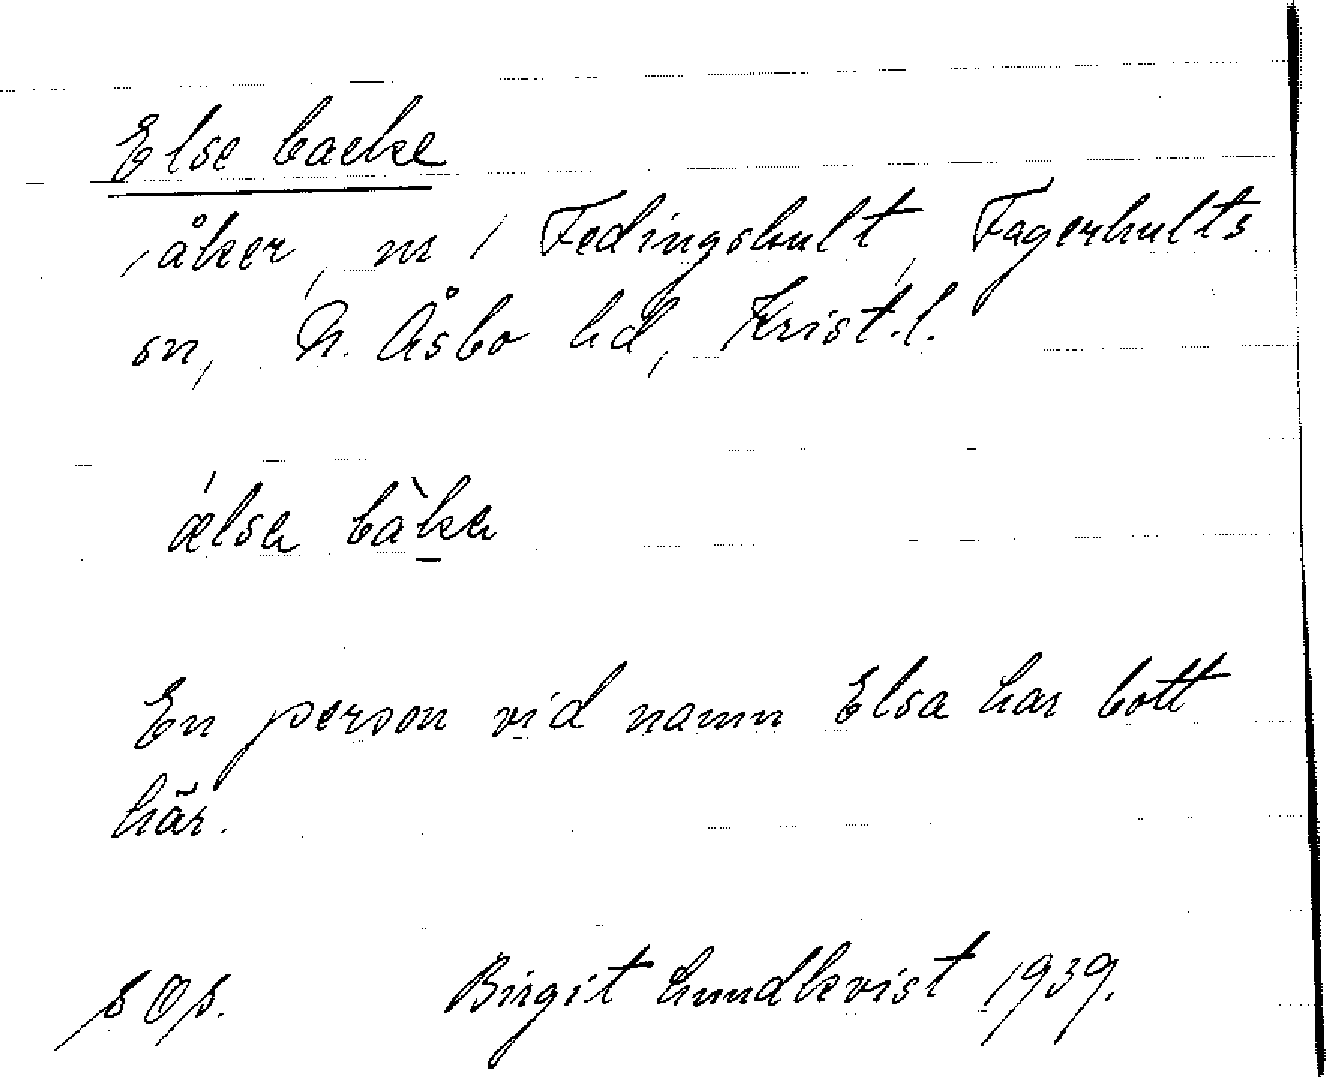 Else backe
åker, m / Fedingshult, Fagerhults
sn, N. Åsbo hd, Krist.l.
ælsa bàka
En person vid namn Elsa har bott
här.
Birgit Lundkvist 1939.